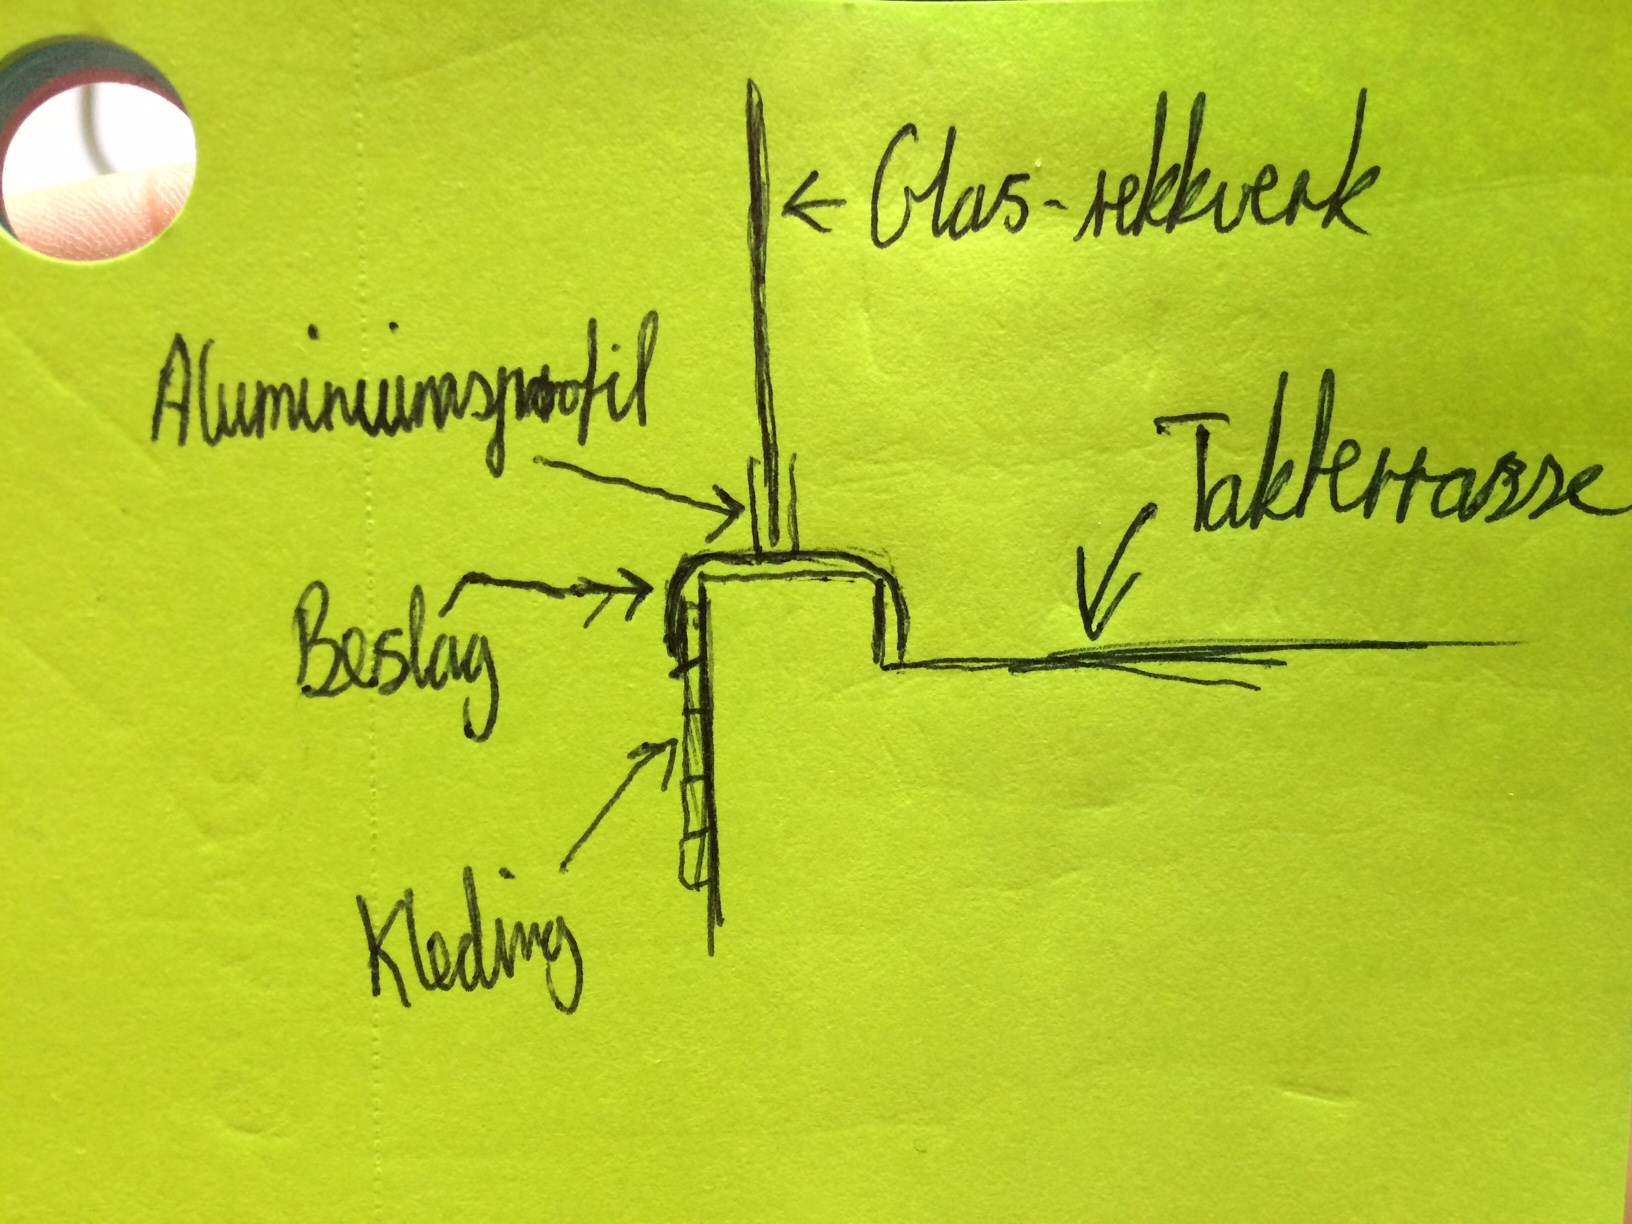 Glas-rekkverk
Aluminiumsprofil
Takterrasse
Beslag
Kleding